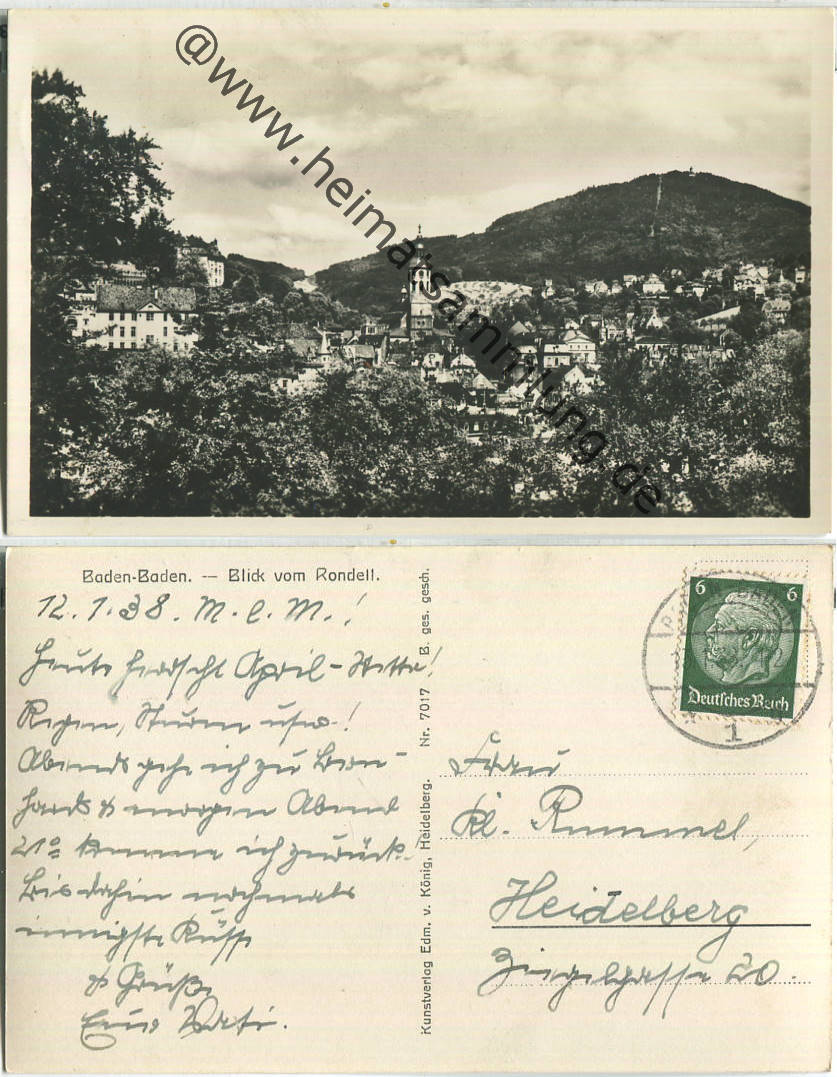 @www.heimatsammlung.de
Baden-Baden. — Blick vom Rondell.
12.1.38. M.l.M.!
Heute herrscht April-Wetter!
Regen, Sturm usw.!
Abends gehe ich zu Bern-
hards & morgen Abend
21⁰⁰ komme ich zurück.
Bis dahin nochmals
innigste Küsse
& Grüße
Euer Vati.
Kunstverlag Edm. v. König, Heidelberg. Nr. 7017 B. ges. gesch.
6 6
Deutsches Reich
1
Frau
Rummel,
Heidelberg
Ziegelgasse 20.